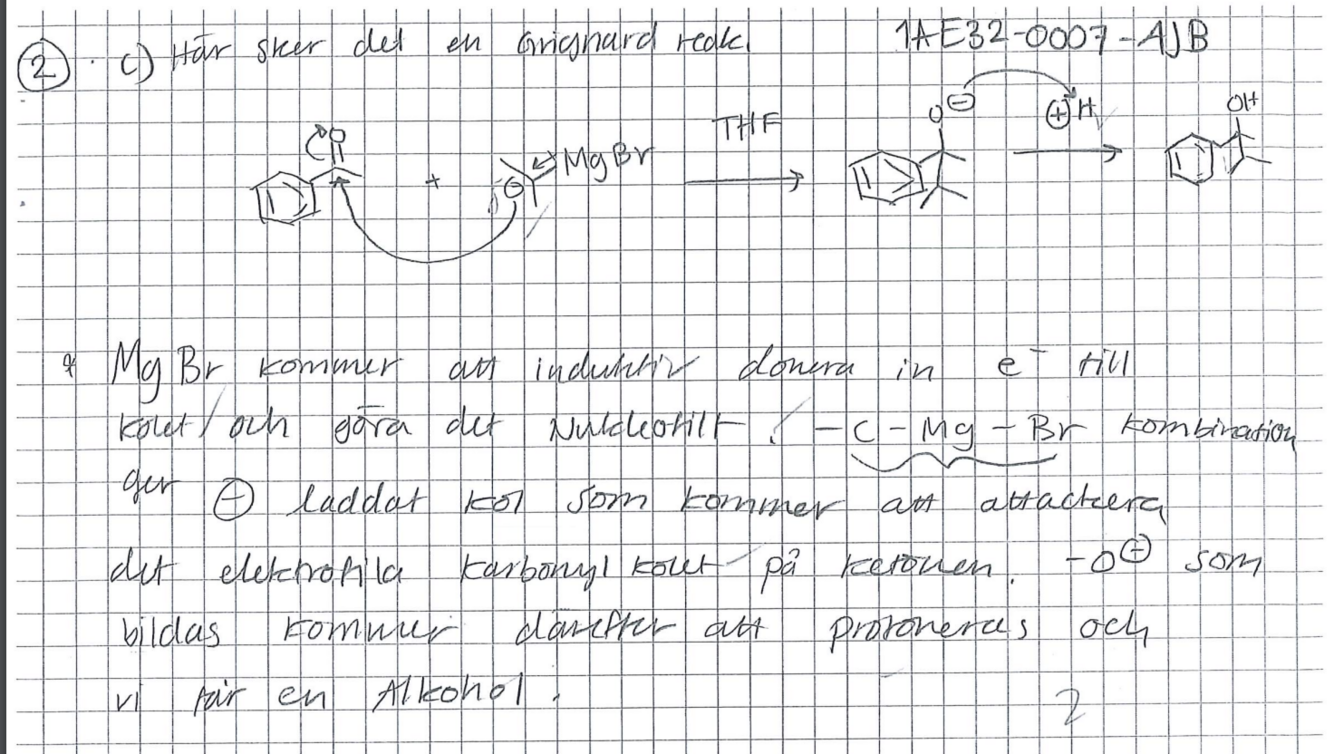 ② . c) Här sker det en Grignard reak. 1AE32-0007-AJB
O
+
⊖
MgBr
THF
O⊖
⊕H
OH
* MgBr kommer att induktiv donera in e⁻ till
kolet/och göra det Nukleofilt! -C-Mg-Br kombination
ger ⊖ laddat kol som kommer att attackera
det elektrofila karbonyl kolet på ketonen. -O⊕ som
bildas kommer därefter att protoneras och
vi får en Alkohol.
2